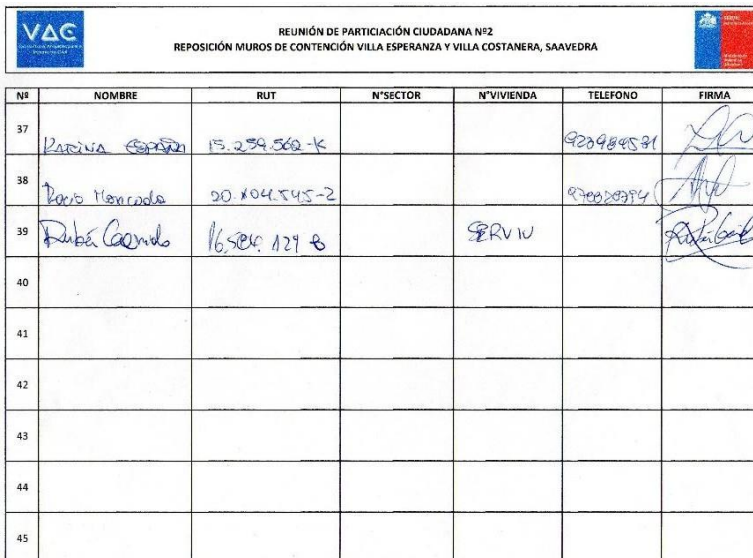 VAC
REUNIÓN DE PARTICIACIÓN CIUDADANA Nº2
REPOSICIÓN MUROS DE CONTENCIÓN VILLA ESPERANZA Y VILLA COSTANERA, SAAVEDRA
Nº NOMBRE RUT N°SECTOR N°VIVIENDA TELEFONO FIRMA
37 KARINA ESPAÑA 15.259.562-K 923984581
38 Rocio Moncada
39 Rubén SERVIU
40
41
42
43
44
45